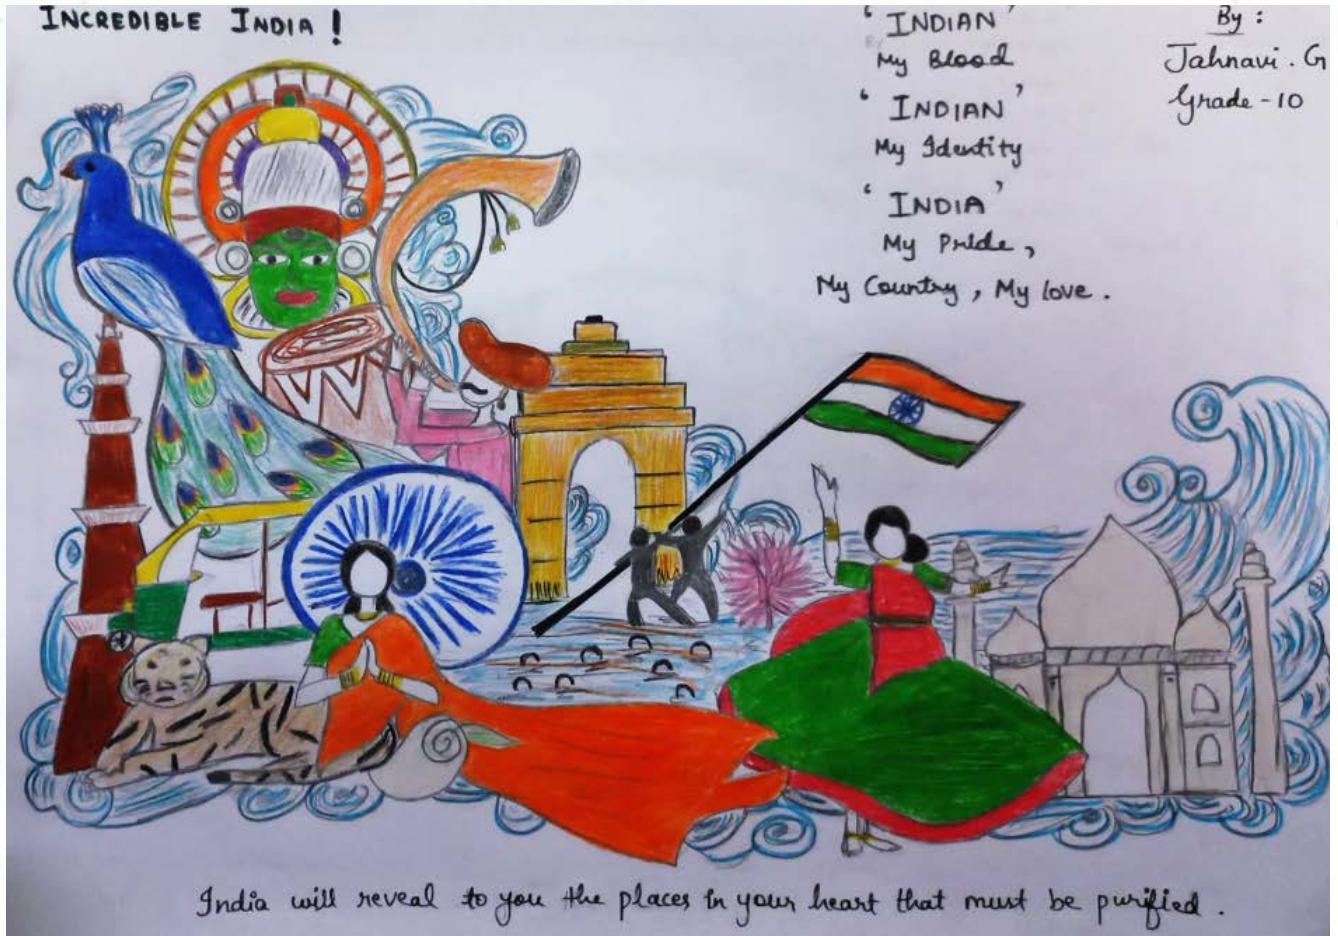 INCREDIBLE INDIA !
'INDIAN'
My Blood
'INDIAN'
My Identity
'INDIA'
My Pride,
My Country, My love.
By :
Jahnavi. G
Grade - 10
India will reveal to you the places in your heart that must be purified.